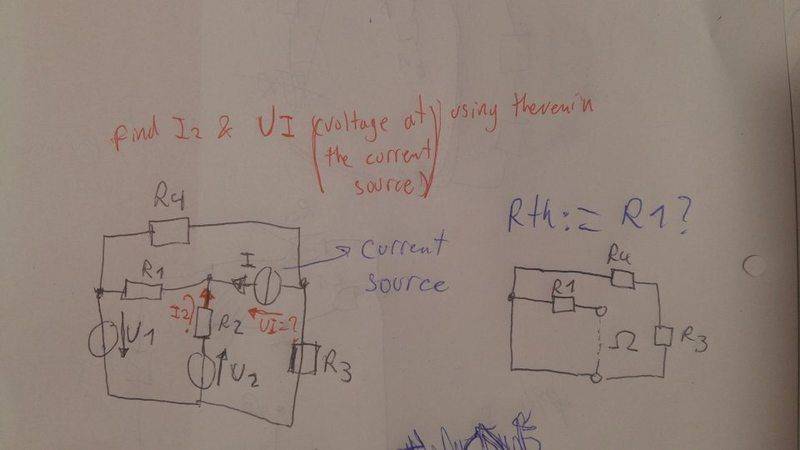 find I2 & UI (voltage at the current source) using thevenin
R4
R1
I
current source
I2?
R2
UI=?
U1
U2
R3
Rth:= R1?
R4
R1
Ω
R3